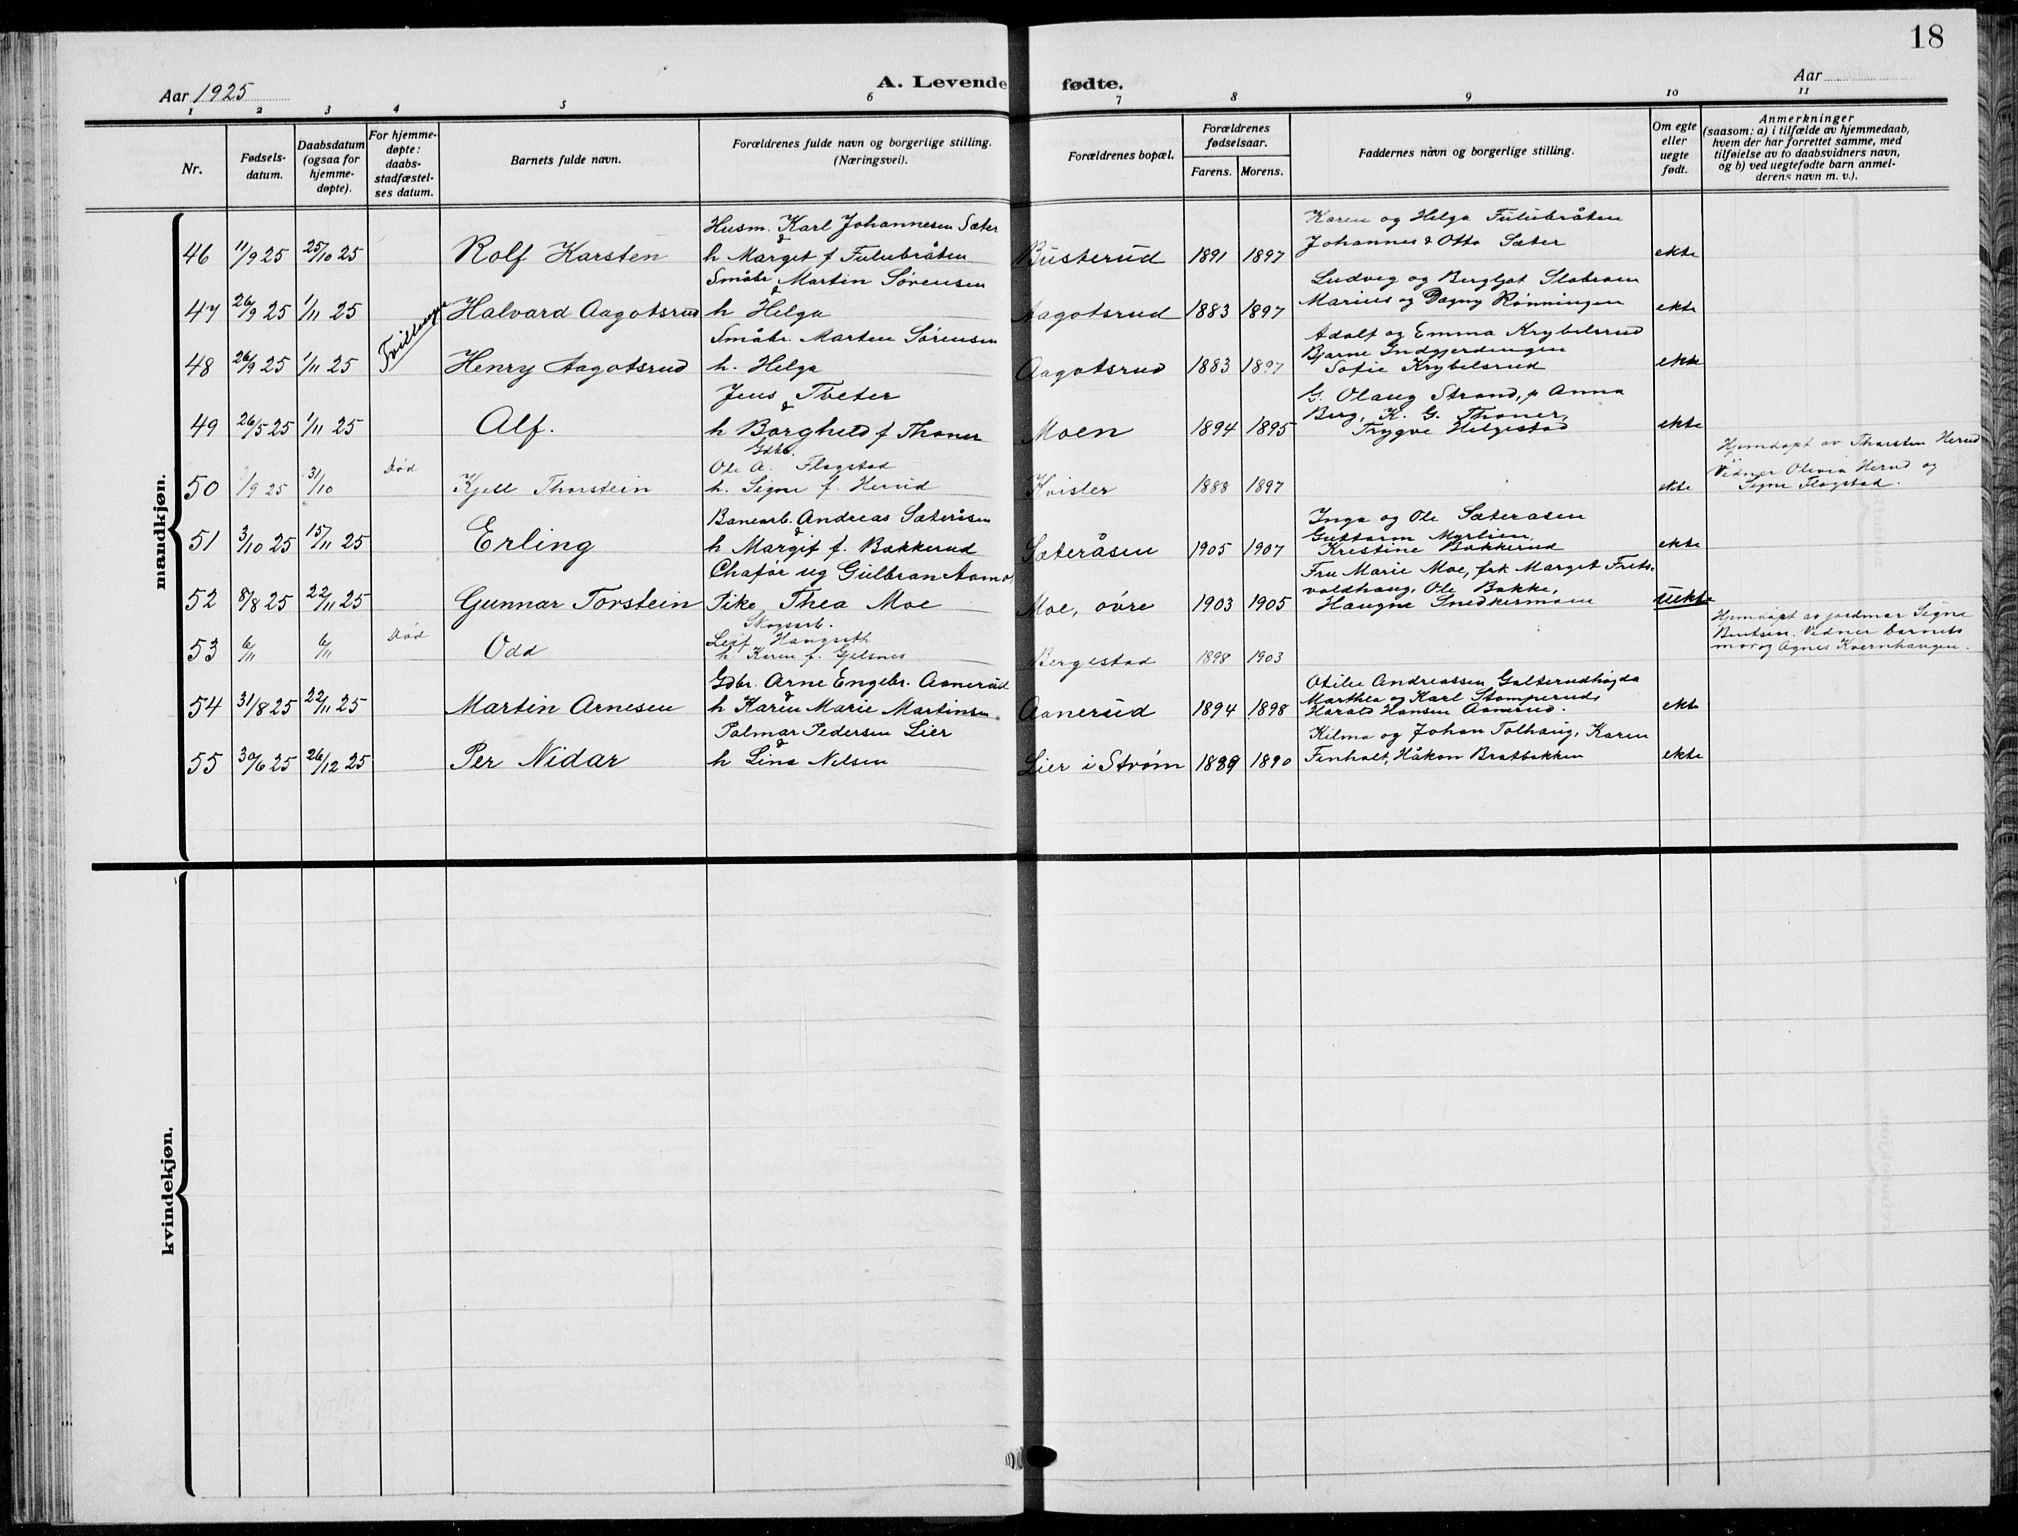 18
Aar 1925
A. Levende fødte.
Aar
1 2 3 4 5 6 7 8 9 10 11
Nr.
Fødsels-
datum.
Daabsdatum
(ogsaa for
hjemme-
døpte).
For hjemme-
døpte:
daabs-
stadfæstel-
ses datum.
Barnets fulde navn.
Forældrenes fulde navn og borgerlige stilling.
(Næringsvei).
Forældrenes bopæl.
Forældrenes
fødselsaar.
Farens. Morens.
Faddernes navn og borgerlige stilling.
Om egte
eller
uegte
født.
Anmerkninger
(saasom: a) i tilfælde av hjemmedaab,
hvem der har forrettet samme, med
tilføielse av to daabsvidners navn,
og b) ved uegtefødte barn anmel-
derens navn m. v.).
mandkjøn.
Husm. Karl Johannesen Sæter
Karen og Helga Fulubråten
46 11/9 25 25/10 25 Rolf Karsten & h Marget f Fulubråten Busterud 1891 1897 Johannes & Otto Sæter ekte
Småbr Martin Sørensen
Ludvig og Bergljot Slobraen
47 26/9 25 1/11 25 Tvillinger Halvard Aagotsrud & h Helga Aagotsrud 1883 1897 Marius og Dagny Rønningen ekte
Småbr. Marten Sørensen
Adolf og Emma Krybelsrud
Bjarne Indgjerdingen
48 26/9 25 1/11 25 Henry Aagotsrud h. Helga Aagotsrud 1883 1897 Sofie Krybelsrud ekte
Jens Tveter
G. Olaug Strand, p Anna
Berg, K. G. Thoner,
49 26/5 25 1/11 25 Alf. & h Borghild f Thoner Moen 1894 1895 Trygve Helgestad ekte
Gdbr.
Ole A. Flagstad
Hjemdøpt av Thorsten Herud
Vidner Olivia Herud og
50 1/9 25 31/10 Død Kjell Thorstein h. Signe f. Herud Kvisler 1888 1897 ekte Signe Flagstad.
Banearb. Andreas Sæteråsen
Inga og Ole Sæteråsen
Guttorm Myrlien,
51 3/10 25 15/11 25 Erling & h Margit f. Bakkerud Sæteråsen 1905 1907 Kristine Bakkerud ekte
Chafør ug Gulbran Aamo
Fru Marie Moe, frk Marget Frits-
voldhaug, Ole Bakke,
52 8/8 25 22/11 25 Gunnar Torstein Pike Thea Moe Moe, øvre 1903 1905 Haugne Snedkermoen uekte
Skogsarb.
Leif Haugseth
Hjemdøpt av jordmor Signe
Bentsen. Vidner barnets
53 6/11 6/11 Død Odd h. Karen f. Gjelsnes Bergestad 1898 1903 mor og Agnes Kvernhaugen.
Gdbr. Arne Engebr. Aanerud
Otilie Andreassen Galterudhøgda
Marthea og Karl Stomperud,
54 31/8 25 22/11 25 Martin Arnesen & h Karen Marie Martinsen Aanerud 1894 1898 Harald Hansen Aanerud. ekte
Palmar Pedersen Lier
Hilma og Johan Tolhaug, Karen
55 30/6 25 26/12 25 Per Nidar & h Lina Nilsen Lier i Strøm 1889 1890 Finholt, Håkon Bratbakken ekte
kvindekjøn.